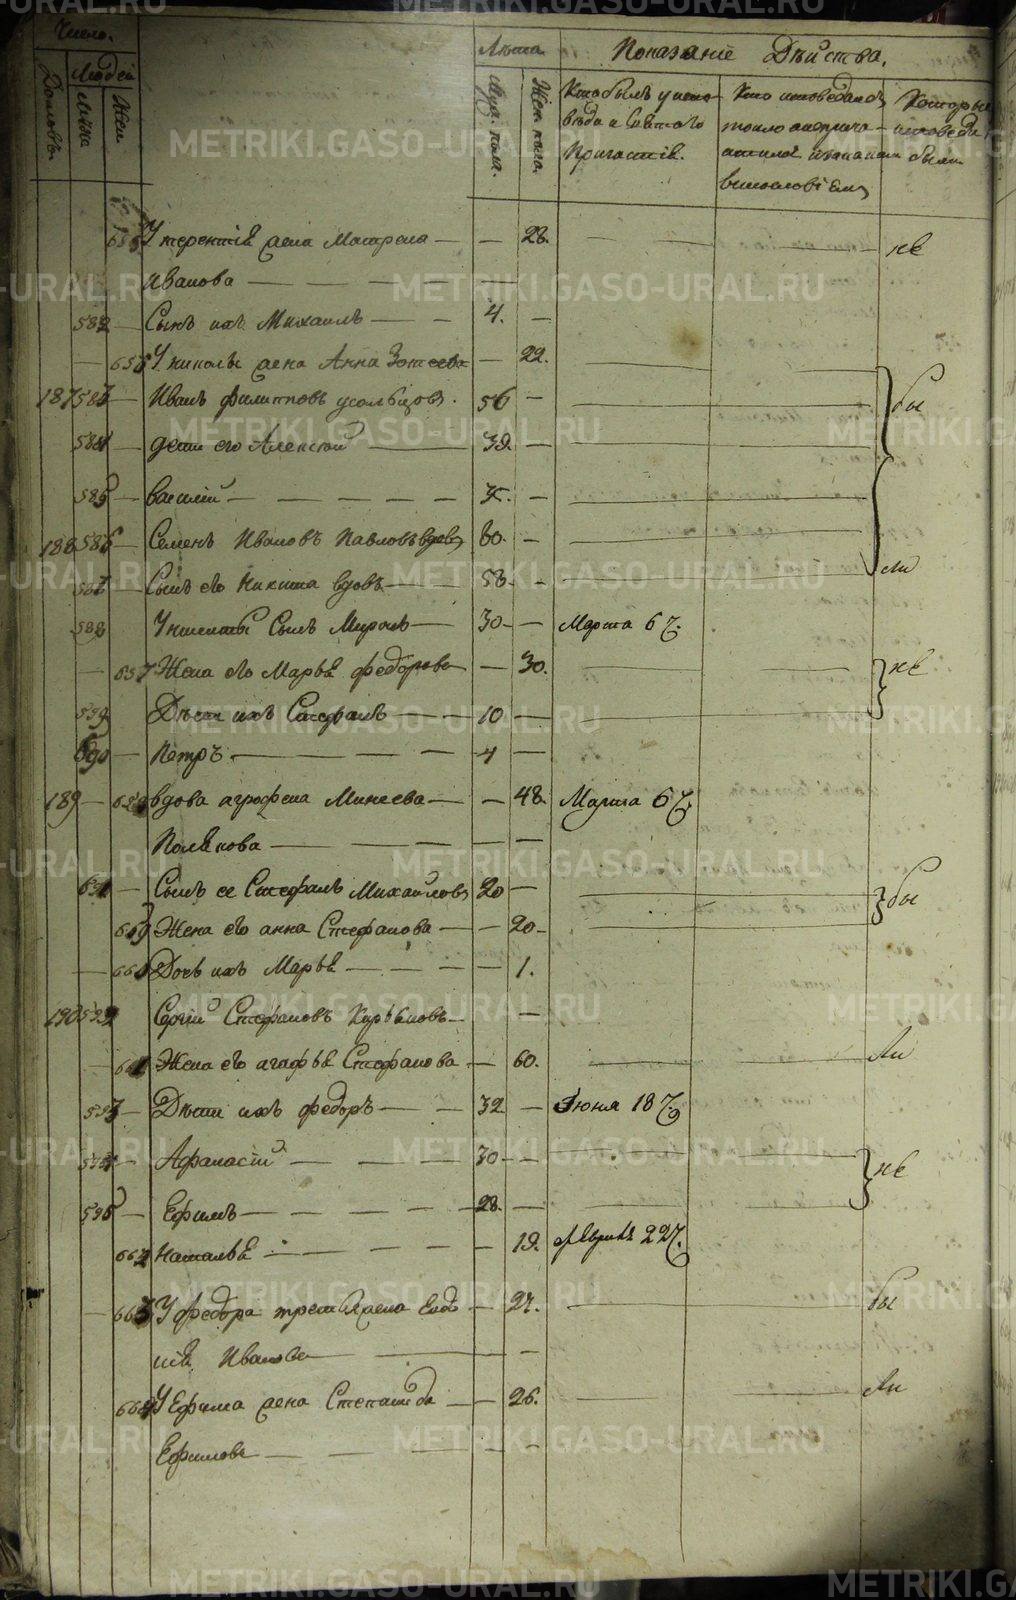 Число.
Людей
Домовъ.
Мужа
Жен.
Лѣта
Муж. пола.
Жен. пола.
Показанiе Дѣйства.
Кто былъ у испо-
вѣди и Святаго
Причастiя.
Кто исповедался
токмо а не прича-
стился и за каким
винословiем
Которые
исповеди
не были
У терентiя жена Матрена — — 28. не
Иванова
582 Сынъ ихъ Михаилъ — 4. —
656 У николы жена Анна Зотеева — 22.
187 583 Иванъ филиповъ усольцовъ. 56 — бы
584 дети его Алексей — 39. —
585 Василiй —
188 586 Семенъ Ивановъ Павловъ вдовъ 80. —
587 Сынъ его Никита вдовъ — 58. — ли
588 У никиты Сынъ Миронъ — 30 — Марта 6 7.
657 Жена его Марья федорова — 30. не
589 Дѣти ихъ Стефанъ — 10 —
590 Петръ — 4 —
189 — 658 вдова агрофена Минеева — 48. Марта 6 7.
Полякова
591 Сынъ ее Стефанъ Михайловъ 20 — бы
659 Жена его анна Стефанова — 20 —
660 Дочь ихъ Марья — 1.
190 592 Сергiй Стефановъ —
661 Жена его агафья Стефанова — 60. ли
593 Дѣти ихъ федоръ — 32 — Iюня 18
594 Афанасiй — 30 — не
595 Ефимъ — 28. —
662 Наталья — 19. февраля 22
663 У федора третья жена Евдо — 27. бы
кiя Иванова
664 У Ефима жена Степанида — 26. ли
Ефимова
METRIKI.GASO-URAL.RU